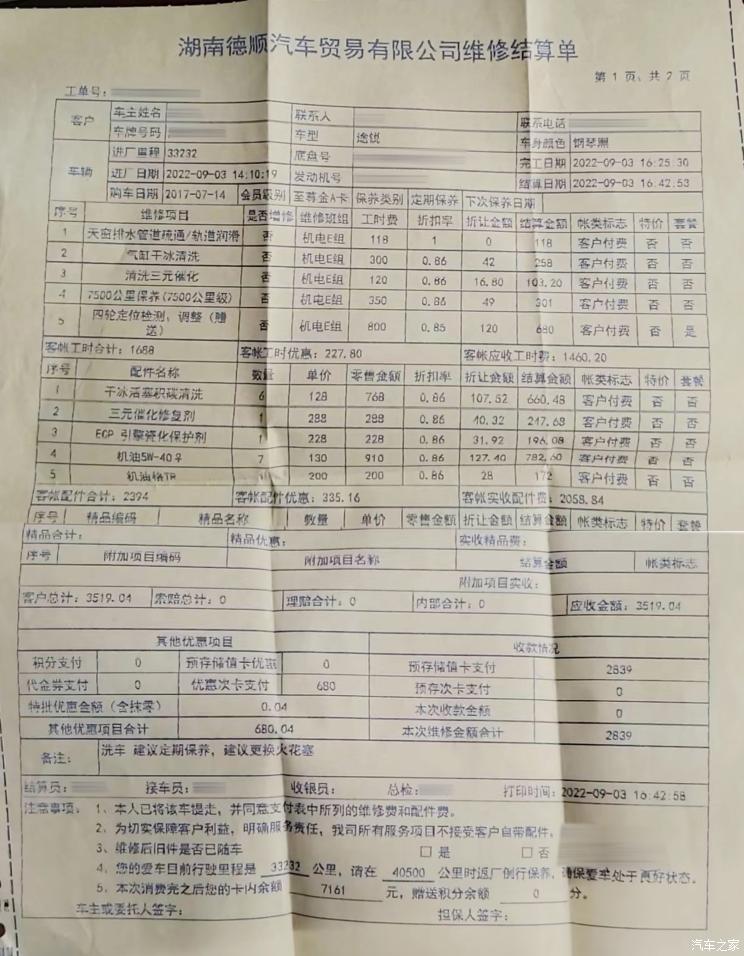 湖南德顺汽车贸易有限公司维修结算单
第 1 页, 共 2 页
工单号:
客户 车主姓名 联系人 联系电话
车牌号码 车型 途锐 车身颜色 钢琴黑
车辆 进厂里程 33232 底盘号 完工日期 2022-09-03 16:25:30
进厂日期 2022-09-03 14:10:19 发动机号 结算日期 2022-09-03 16:42:53
购车日期 2017-07-14 会员级别 至尊金A卡 保养类别 定期保养 下次保养日期
序号 维修项目 是否增修 维修班组 工时费 折扣率 折让金额 结算金额 帐类标志 特价 套餐
1 天窗排水管道疏通/轨道润滑 否 机电E组 118 1 0 118 客户付费 否 否
2 气缸干冰清洗 否 机电E组 300 0.86 42 258 客户付费 否 否
3 清洗三元催化 否 机电E组 120 0.86 16.80 103.20 客户付费 否 否
4 7500公里保养(7500公里级) 否 机电E组 350 0.86 49 301 客户付费 否 否
5 四轮定位检测、调整(赠送) 否 机电E组 800 0.85 120 680 客户付费 否 是
客帐工时合计: 1688 客帐工时优惠: 227.80 客帐应收工时费: 1460.20
序号 配件名称 数量 单价 零售金额 折扣率 折让金额 结算金额 帐类标志 特价 套餐
1 干冰活塞积碳清洗 6 128 768 0.86 107.52 660.48 客户付费 否 否
2 三元催化修复剂 1 288 288 0.86 40.32 247.68 客户付费 否 否
3 ECP 引擎瓷化保护剂 1 228 228 0.86 31.92 196.08 客户付费 否 否
4 机油5W-40 7 130 910 0.86 127.40 782.60 客户付费 否 否
5 机油格TR 1 200 200 0.86 28 172 客户付费 否 否
客帐配件合计: 2394 客帐配件优惠: 335.16 客帐实收配件费: 2058.84
序号 精品编码 精品名称 数量 单价 零售金额 折让金额 结算金额 帐类标志 特价 套餐
精品合计: 精品优惠: 实收精品费:
序号 附加项目编码 附加项目名称 结算金额 帐类标志
附加项目实收:
客户总计: 3519.04 索赔总计: 0 理赔合计: 0 内部合计: 0 应收金额: 3519.04
其他优惠项目 收款情况
积分支付 0 预存储值卡优惠 0 预存储值卡支付 2839
代金券支付 0 优惠次卡支付 680 预存次卡支付 0
特批优惠金额(含抹零) 0.04 本次收款金额 0
其他优惠项目合计 680.04 本次维修金额合计 2839
备注: 洗车 建议定期保养, 建议更换火花塞
结算员: 接车员: 收银员: 总检: 打印时间: 2022-09-03 16:42:58
注意事项: 1、本人已将该车提走, 并同意支付表中所列的维修费和配件费。
2、为切实保障客户利益, 明确服务责任, 我司所有服务项目不接受客户自带配件。
3、维修后旧件是否已随车 □ 是 □ 否
4、您的爱车目前行驶里程是 33232 公里, 请在 40500 公里时返厂例行保养, 确保爱车处于良好状态。
5、本次消费完之后您的卡内余额 7161 元, 赠送积分余额 0 分。
车主或委托人签字: 担保人签字:
汽车之家